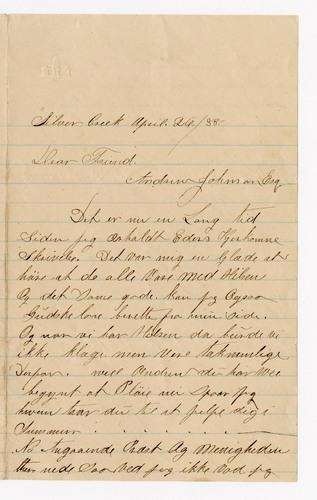 Silver Creek April 24/88
Dear Friend.
Andrew Johnson Esq.
Det er nu en Lang tid
Siden jeg erholdt Eders Hjerkomne
Skrivelse. Det var mig en Glade at
höre at de alle Vare med Hilsen
Og det Samme gode kan jeg Ogsaa
Gudske love berette fra min side.
Og naar vi har Helsen da burde vi
ikke klage men Vere takmmelige
derfor. well Andrew du har vel
begynt at Plöie nu Spör jeg
hvem har du til at jelpe dig i
Summer
No Angaaende Prest Og Menigheden
her nede Saa Ved jeg ikke Vad jeg